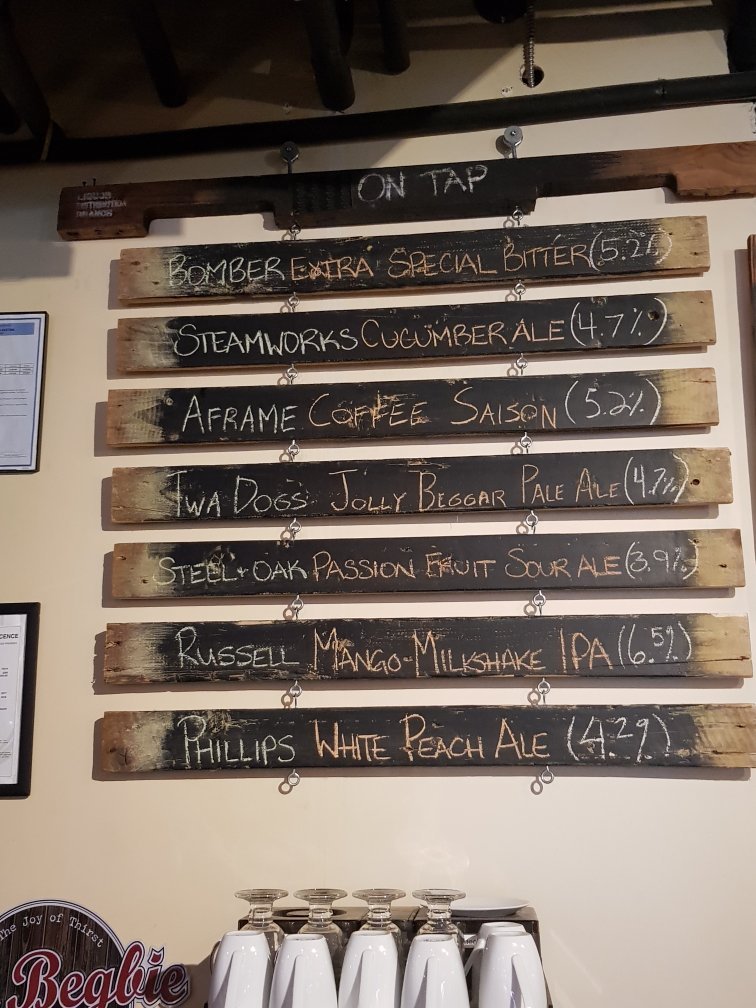 ON TAP
LIQUOR
DISTRIBUTION
BRANCH
BOMBER EXTRA SPECIAL BITTER (5.2%)
STEAMWORKS CUCUMBER ALE (4.7%)
AFRAME COFFEE SAISON (5.2%)
TWA DOGS JOLLY BEGGAR PALE ALE (4.7%)
STEEL & OAK PASSION FRUIT SOUR ALE (3.9%)
RUSSELL MANGO-MILKSHAKE IPA (6.5%)
PHILLIPS WHITE PEACH ALE (4.2%)
The Joy of Thirst
Begbie